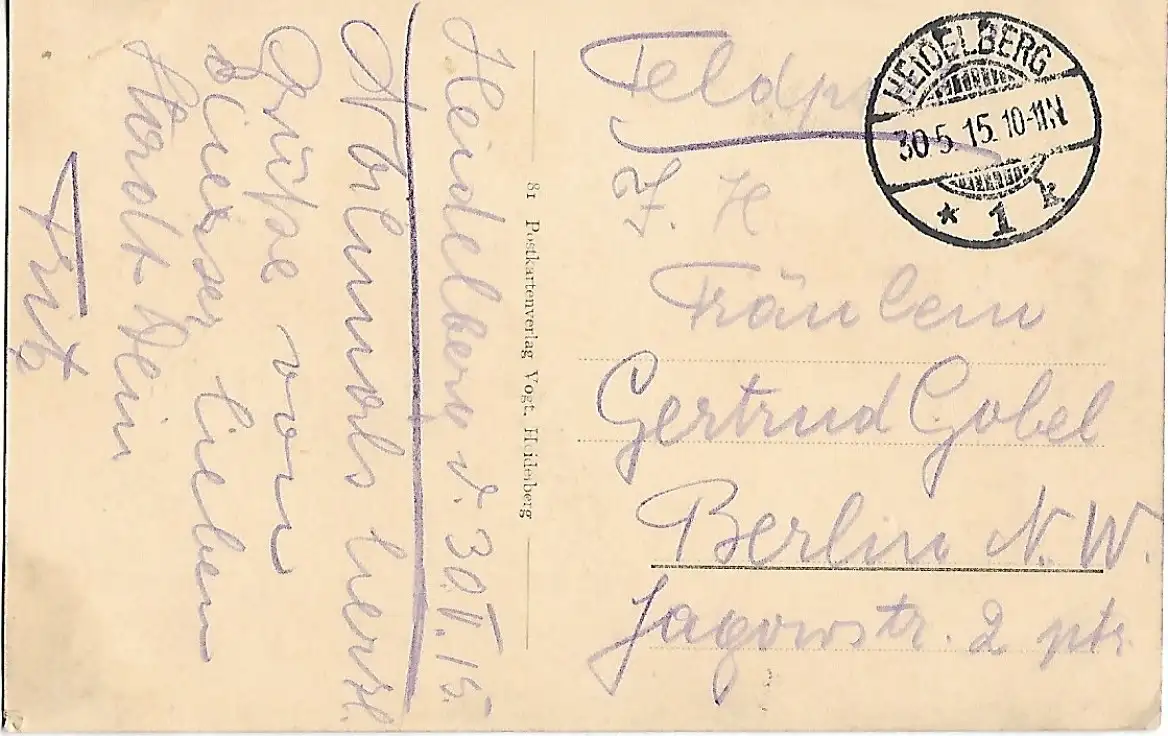 Heidelberg d. 30.V.15.
Nochmals herzl.
Grüße von
dieser lieben
Stadt. Dein
Fritz
81 Postkartenverlag Vogt. Heidelberg
Feldp
HEIDELBERG
30.5.15.10-11N
* 1 k
Z. H.
Fräulein
Gertrud Gobel
Berlin N.W.
Jagowstr. 2 ptr.